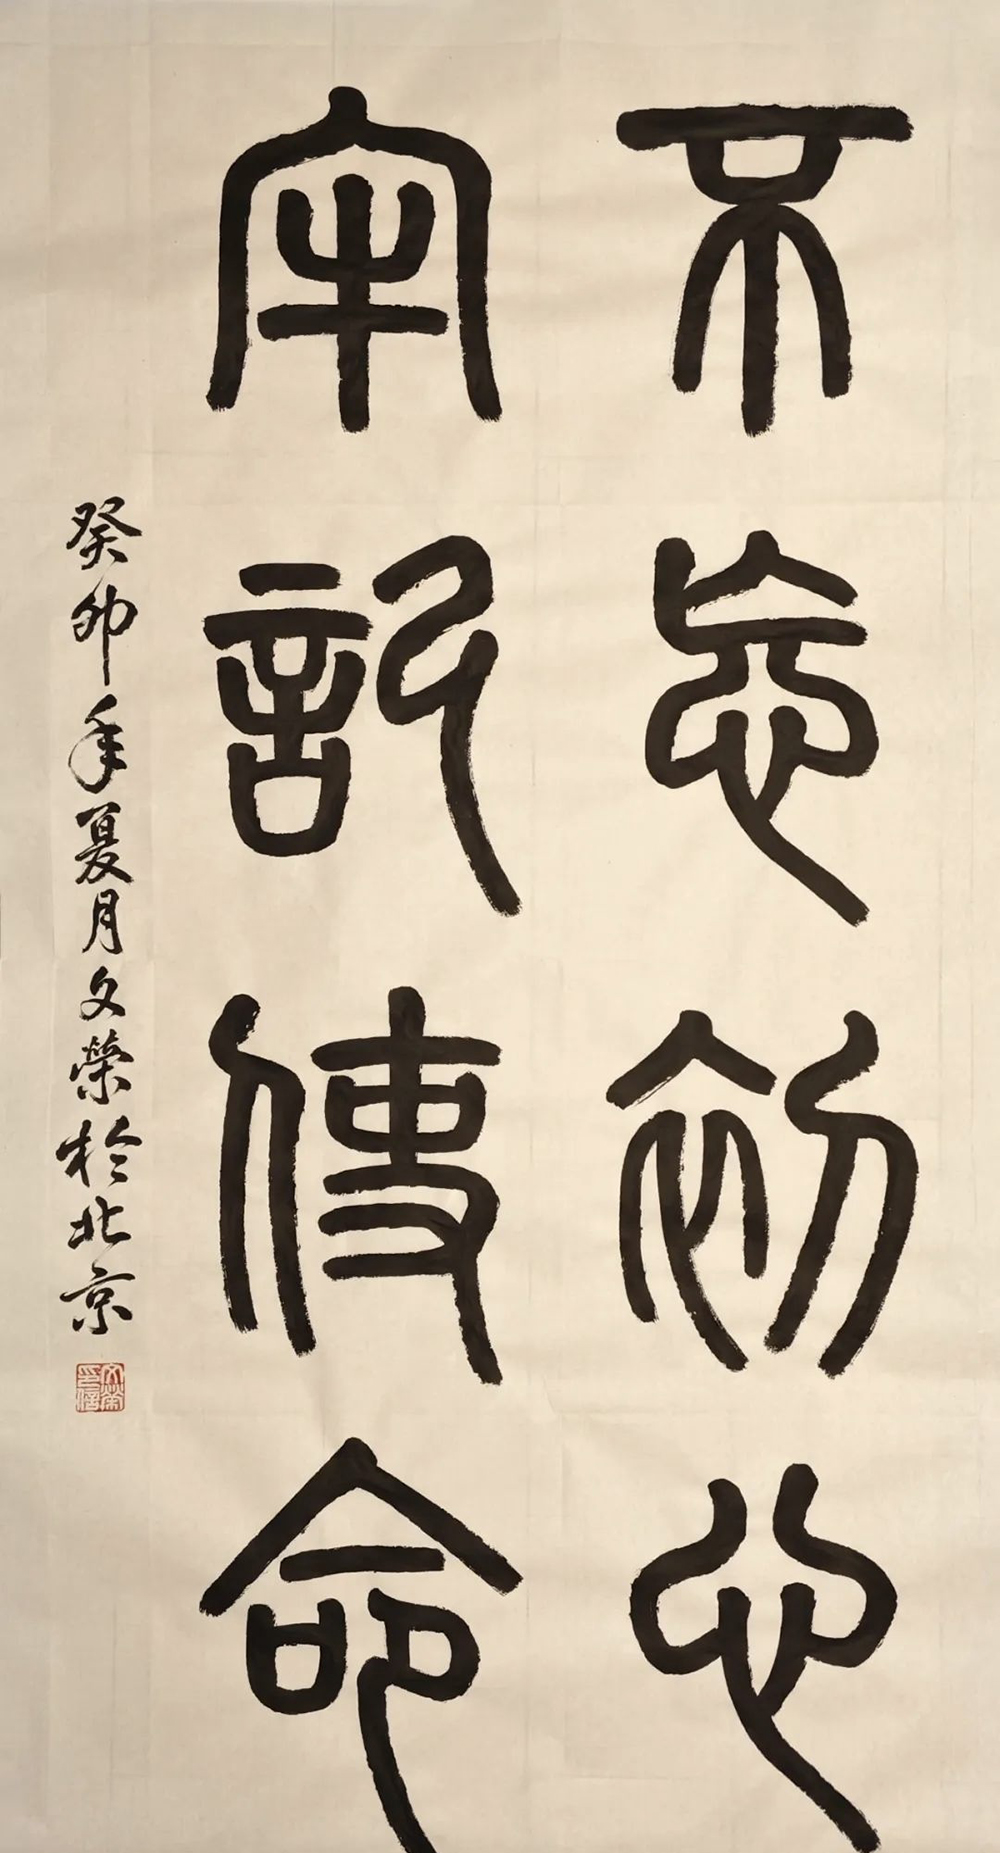 不忘初心
牢記使命
癸卯年夏月文榮於北京
文榮印信